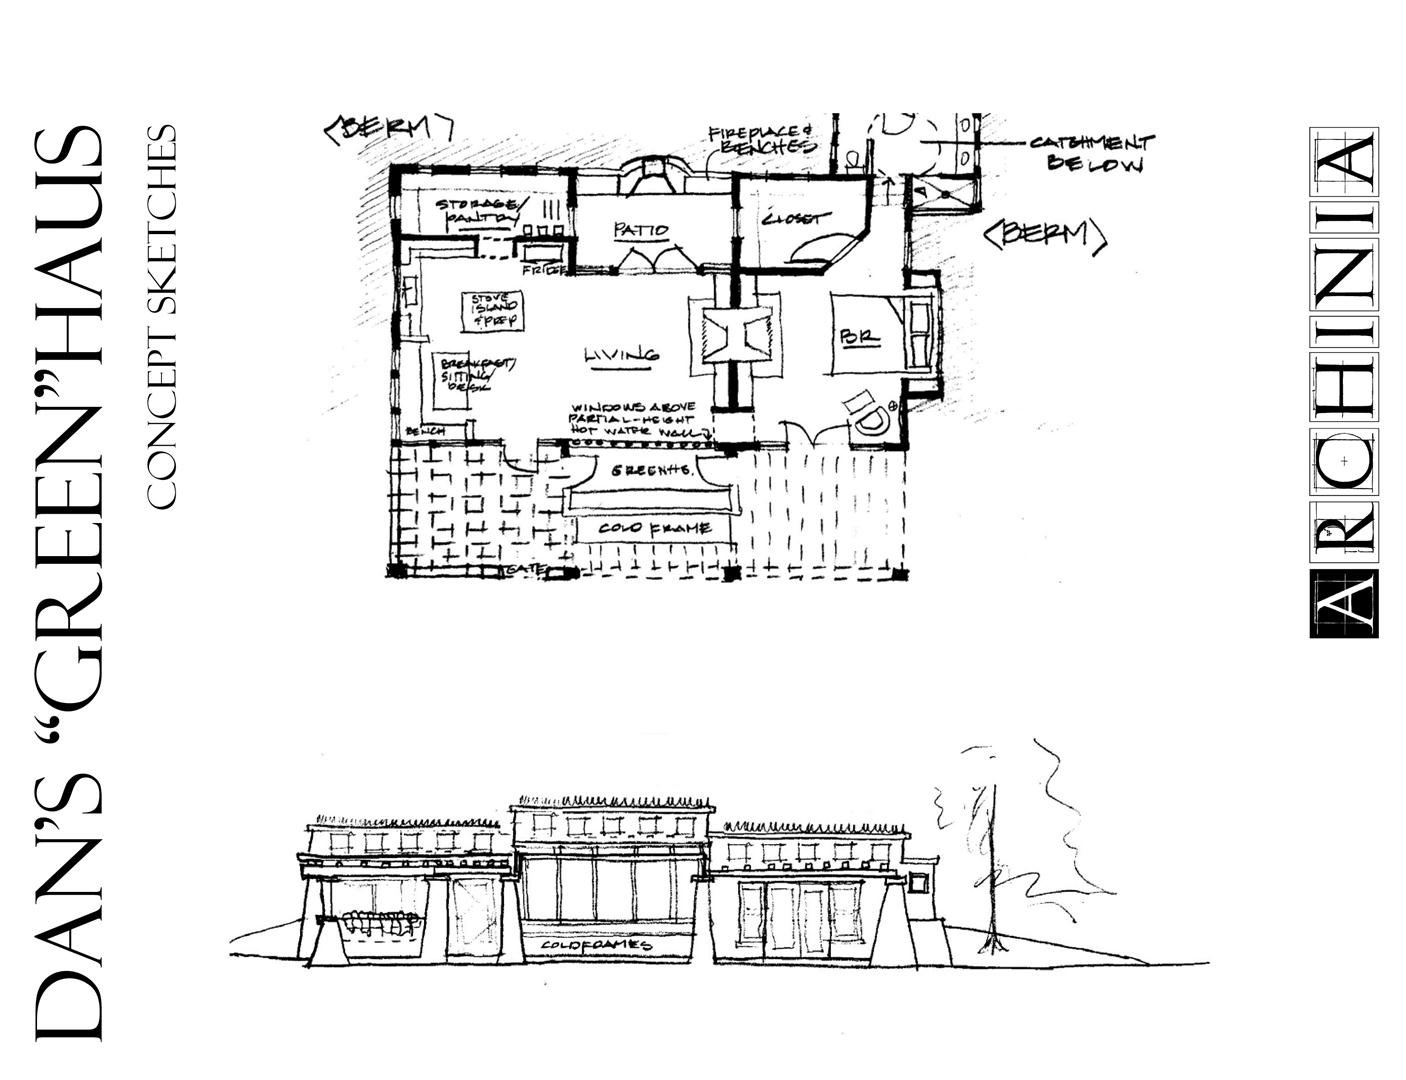 DAN'S "GREEN"HAUS
CONCEPT SKETCHES
<BERM>
FIREPLACE &
BENCHES
CATCHMENT
BELOW
STORAGE/
PANTRY
PATIO
CLOSET
<BERM>
FRIDGE
STOVE
ISLAND
& PREP
LIVING
BR
BREAKFAST/
SITTING/
DESK
WINDOWS ABOVE
PARTIAL-HEIGHT
HOT WATER WALL
BENCH
GREENHS.
COLD FRAME
GATE
COLDFRAMES
ARCHINIA